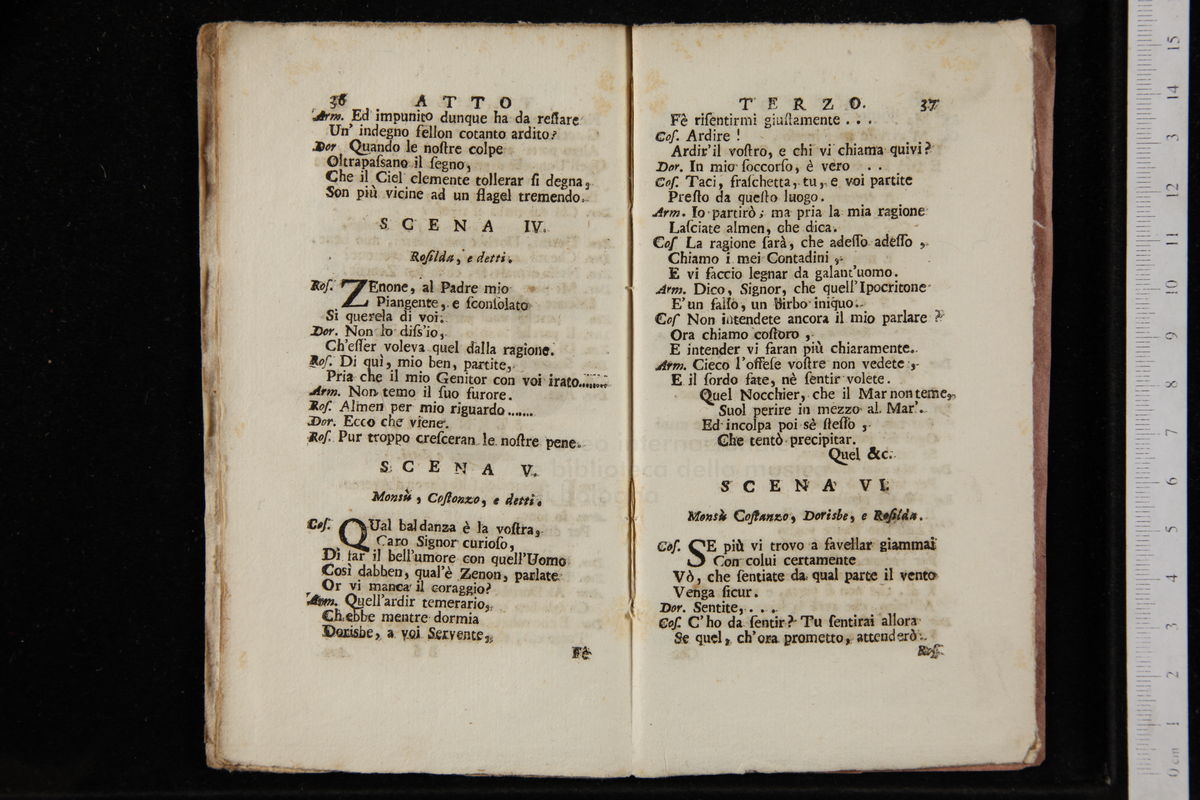 36 ATTO
Arm. Ed impunito dunque ha da reſtare
Un' indegno fellon cotanto ardito?
Dor Quando le noſtre colpe
Oltrapaſsano il ſegno,
Che il Ciel clemente tollerar ſi degna,
Son più vicine ad un flagel tremendo.
SCENA IV.
Roſilda, e detti.
Roſ. ZEnone, al Padre mio
Piangente, e ſconſolato
Si querela di voi.
Dor. Non lo diſs'io,
Ch'eſſer voleva quel dalla ragione.
Roſ. Di quì, mio ben, partite,
Pria che il mio Genitor con voi irato........
Arm. Non temo il ſuo furore.
Roſ. Almen per mio riguardo.......
Dor. Ecco che viene.
Roſ. Pur troppo creſceran le noſtre pene.
SCENA V.
Monsù, Coſtonzo, e detti.
Coſ. QUal baldanza è la voſtra,
Caro Signor curioſo,
Di far il bell'umore con quell'Uomo
Così dabben, qual'è Zenon, parlate
Or vi manca il coraggio?
Arm. Quell'ardir temerario,
Ch'ebbe mentre dormia
Dorisbe, a voi Servente,
Fè
TERZO. 37
Fè riſentirmi giuſtamente . . .
Coſ. Ardire !
Ardir'il voſtro, e chi vi chiama quivi?
Dor. In mio ſoccorſo, è vero . .
Coſ. Taci, fraſchetta, tu, e voi partite
Preſto da queſto luogo.
Arm. Io partirò; ma pria la mia ragione
Laſciate almen, che dica.
Coſ La ragione ſarà, che adeſſo adeſſo,
Chiamo i mei Contadini,
E vi faccio legnar da galant'uomo.
Arm. Dico, Signor, che quell'Ipocritone
E'un falſo, un Birbo iniquo.
Coſ Non intendete ancora il mio parlare?
Ora chiamo coſtoro,
E intender vi faran più chiaramente.
Arm. Cieco l'offeſe voſtre non vedete,
E il ſordo fate, nè ſentir volete.
Quel Nocchier, che il Mar non teme,
Suol perire in mezzo al Mar'.
Ed incolpa poi sè ſteſſo,
Che tentò precipitar.
Quel &c.
SCENA VI.
Monsù Coſtanzo, Dorisbe, e Roſilda.
Coſ. SE più vi trovo a favellar giammai
Con colui certamente
Vò, che ſentiate da qual parte il vento
Venga ſicur.
Dor. Sentite, . . .
Coſ. C'ho da ſentir? Tu ſentirai allora
Se quel, ch'ora prometto, attenderò.
Roſ.